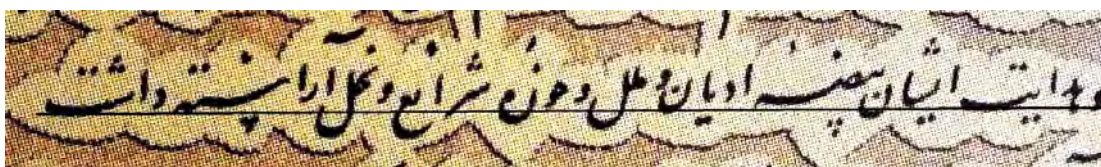 و هدایت ایشان بیضه ادیان و ملل و حوزه شرایع و نحل آراسته داشت